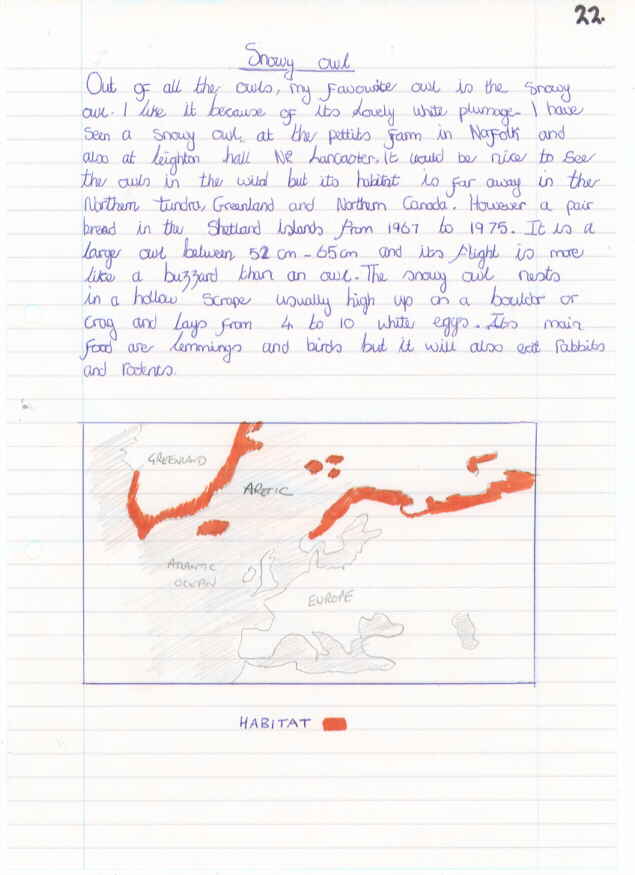 22.
Snowy owl
Out of all the owls, my favourite owl is the snowy
owl. I like it because of its lovely white plumage. I have
seen a snowy owl, at the pettits farm in Norfolk and
also at leighton hall Nr Lancaster. It would be nice to see
the owls in the wild but its habitat is far away in the
Northern tundra, Greenland and Northern Canada. However a pair
bread in the Shetland islands from 1967 to 1975. It is a
large owl between 52 cm - 65cm and its flight is more
like a buzzard than an owl. The snowy owl nests
in a hollow scrape usually high up on a boulder or
Crag and lays from 4 to 10 white eggs. Its main
food are lemmings and birds but it will also eat rabbits
and rodents.
GREENLAND
ARCTIC
ATLANTIC
OCEAN
EUROPE
HABITAT